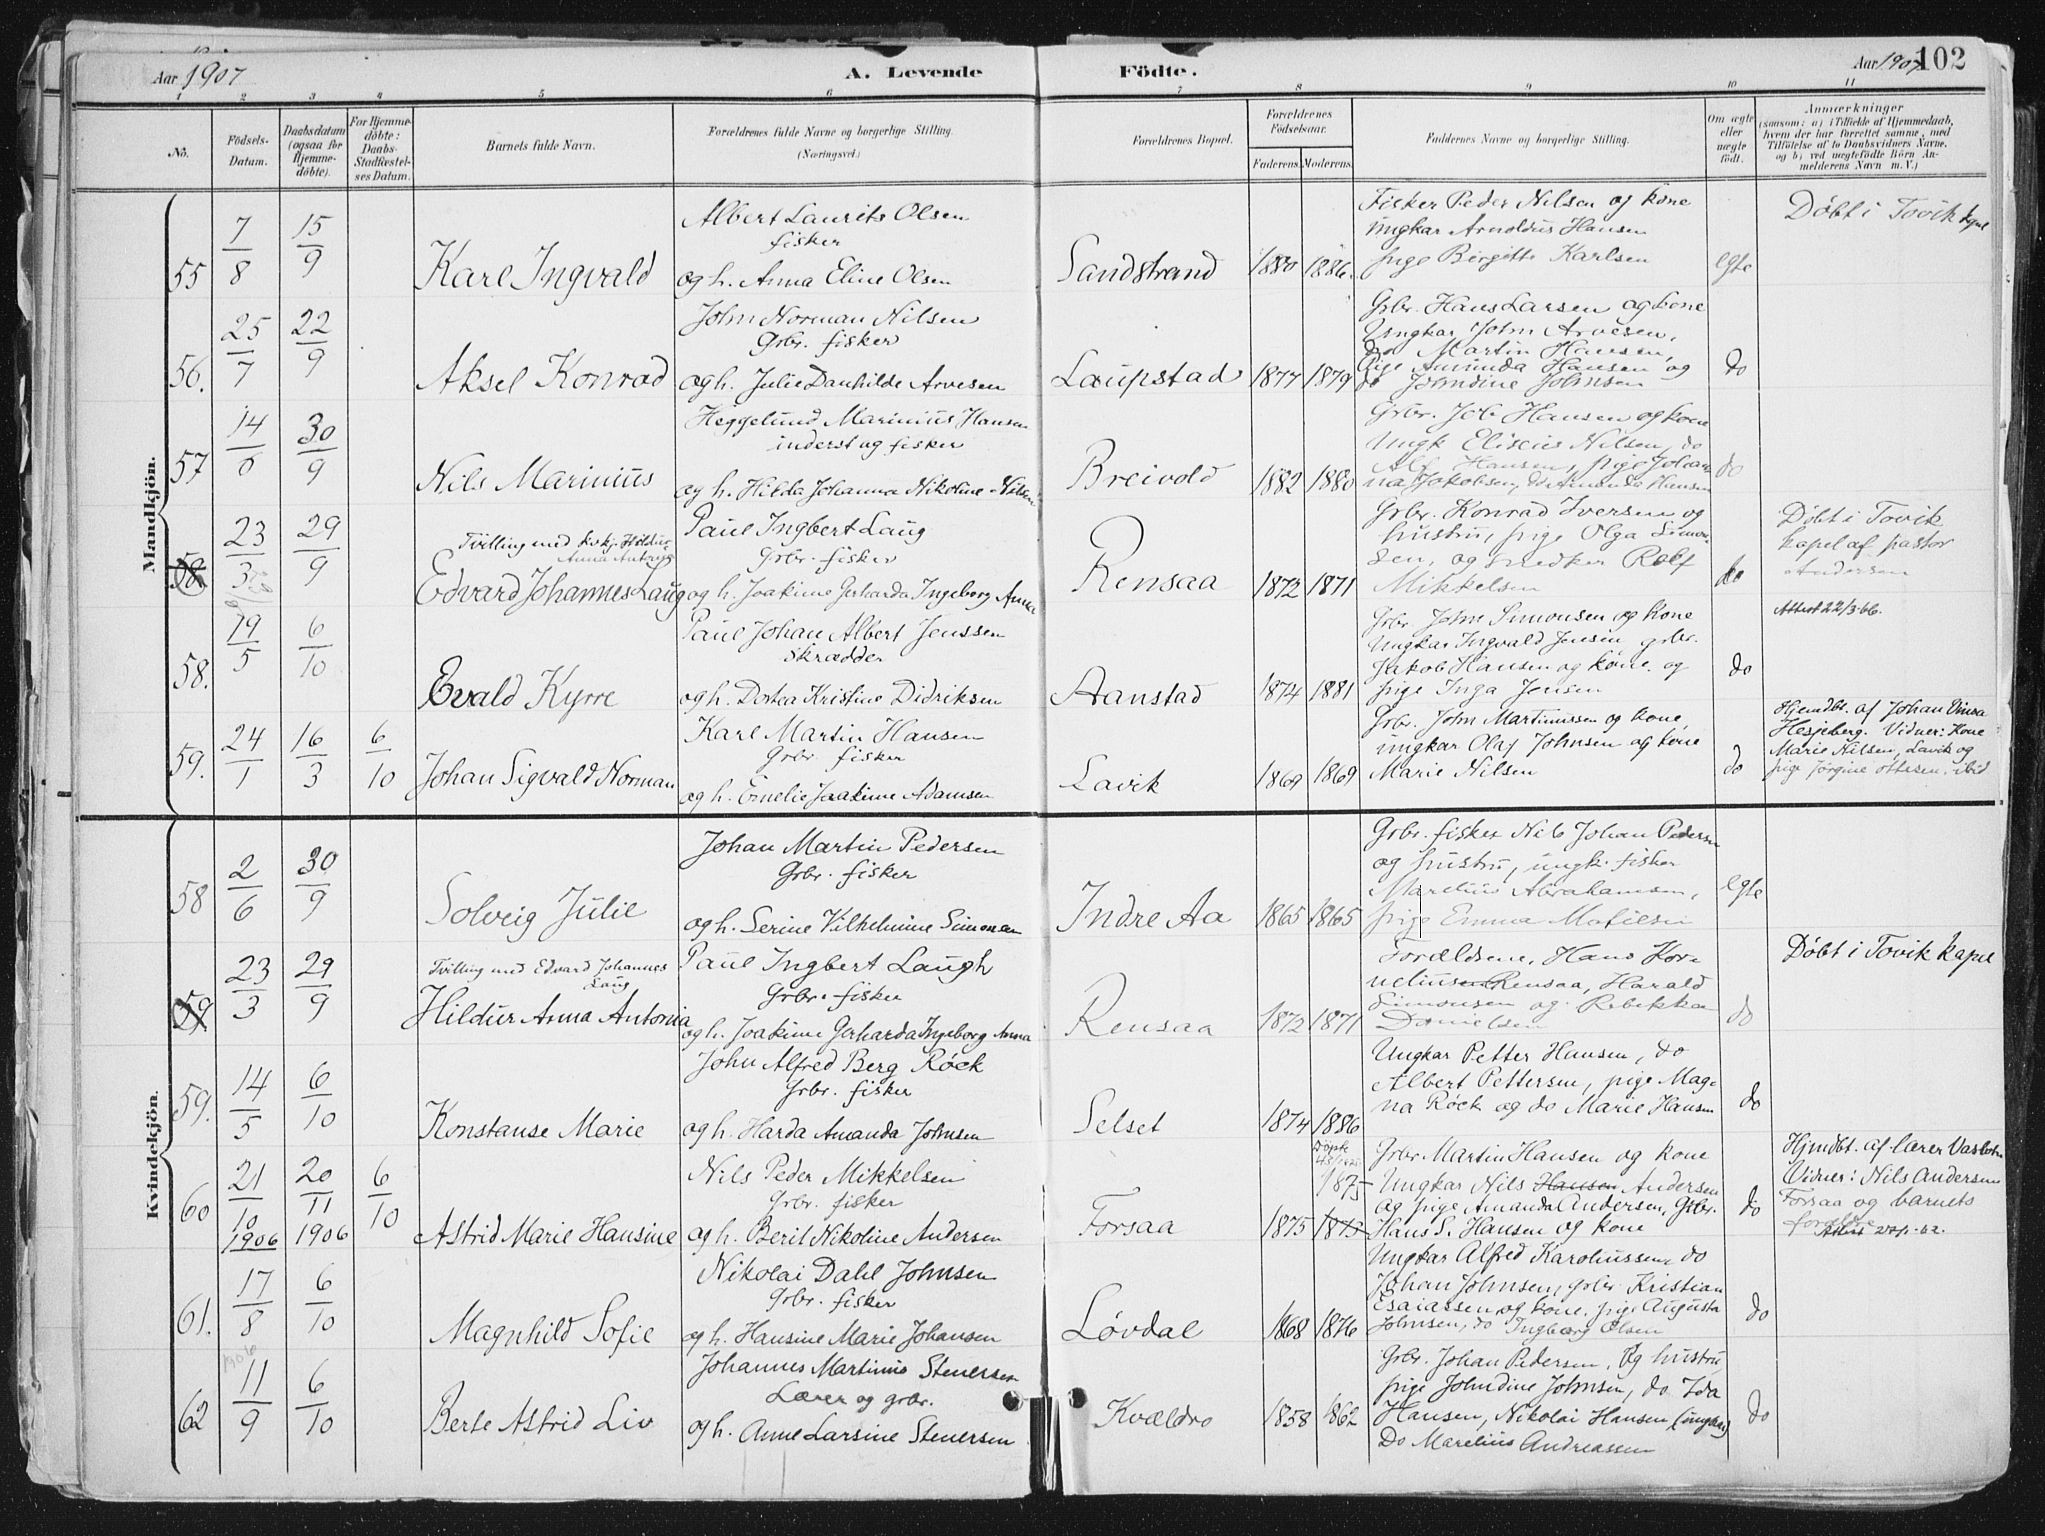 Aar 1907
A. Levende
Födte.
Aar 1907
102
1 2 3 4 5 6 7 8 9 10 11
No.
Födsels-
Datum.
Daabsdatum
(ogsaa for
Hjemme-
döbte).
For Hjemme-
döbte:
Daabs-
Stadfæstel-
ses Datum.
Barnets fulde Navn.
Forældrenes fulde Navne og borgerlige Stilling.
(Næringsvei.)
Forældrenes Bopæl.
Forældrenes
Födselsaar.
Faderens. Moderens.
Faddernes Navne og borgerlige Stilling.
Om ægte
eller
uægte
født.
Anmærkninger
(saasom: a) i Tilfælde af Hjemmedaab,
hvem der har forrettet samme, med
Tilföielse af to Daabsvidners Navne,
og b) ved uægtefödte Börn An-
melderens Navn m. V.)
Mandkjön.
55
7/8
15/9
Karl Ingvald
Albert Laurits Olsen
fisker
og h. Anna Eline Olsen
Sandstrand
1880 1886.
Fisker Peder Nilsen og kone
Ungkar Arnoldus Hansen
pige Birgitte Karlsen
egte
Döbt i Tovik kapel
56.
25/7
22/9
Aksel Konrad
John Norman Nilsen
Grbr. fisker
og h. Julie Danhilde Arvesen
Laupstad
1877 1879
Grbr. Hans Larsen og kone
Ungkar John Arvesen,
do Martin Hansen,
Pige Amunda Hansen og
do Johndine Johnsen
do
57
14/6
30/9
Nils Marinius
Heggelund Marinius Hansen
inderst og fisker
og h. Hilda Johanna Nikoline Nilsen
Breivold
1882 1880
Grbr. Job Hansen og kone
Ungk Eliseus Nilsen, do
Alf Hansen, pige Johan-
na Jakobsen, do Amanda Hansen
do
58.
23/3
29/9
Tvilling med kvkj. Hildur
Anna Antonia
Edvard Johannes Laug
Paul Ingbert Laug
Grbr. fisker
og h. Joakime Gerharda Ingeborg Anna
Rensaa
1872 1871
Grbr. Konrad Iversen og
hustru, pige Olga Simon-
sen, og snedker Rolf
Mikkelsen
do
Döbt i Tovik
kapel af pastor
Andersen
Attest 22/3-66.
58.
19/5
6/10
Evald Kyrre
Paul Johan Albert Jenssen
skrædder
og h. Dotea Kristine Didriksen
Aanstad
1874 1881
Grbr. John Simonsen og kone
Ungkar Ingvald Jensen grbr.
Jakob Hansen og kone. og
pige Inga Jensen
do
59.
24/1
16/3
6/10
Johan Sigvald Norman
Karl Martin Hansen
Grbr fisker
og h. Emelie Joakime Adamsen
Lavik
1869 1869
Grbr. John Martinussen og kone,
ungkar Olaf Johnsen og kone
Marie Nilsen
do
Hjemdbt. af Johan
Hesjeberg. Vidner: Kone
Marie Nilsen, Lavik og
pige Jørgine Ottesen. ibid
Kvindekjön.
58
2/6
30/9
Solveig Julie
Johan Martin Pedersen
Grbr. fisker
og h. Serine Vilhelmine Simonsen
Indre Aa
1865 1865
Grbr. fisker Nils Johan Pedersen
og hustru, ungk. fisker
Marelius Abrahamsen,
pige Emma Matiesen
egte
59
23/3
29/9
Tvilling med Edvard Johannes
Laug
Hildur Anna Antonia
Paul Ingbert Laugh
Grbr. fisker
og h. Joakime Gerharda Ingeborg Anna
Rensaa
1872 1871
Forældrene, Hans Kor-
nelius Rensaa, Harald
Simonsen og Rebekka
Danielsen
do
Döbt i Tovik kapel
59.
14/5
6/10
Konstanse Marie
John Alfred Berg Röck
Grbr. fisker
og h. Harda Amanda Johnsen
Selset
1874 1886
Ungkar Petter Hansen, do
Albert Pettersen, pige Mag-
na Röck og do Marie Hansen
do
60
21/10
1906
20/11
1906
6/10
Astrid Marie Hansine
Nils Peder Mikkelsen
Grbr. fisker
og h. Berit Nikoline Andersen
Forsaa
1875 1873
1875
Grbr Martin Hansen og kone
Ungkar Nils Hansen Andersen
og pige Amanda Andersen, Grbr.
Hans S. Hansen og kone
do
Hjmdbt. af lærer
Vidner: Nils Andersen
Forsaa og barnets
forældre
61.
17/8
6/10
Magnhild Sofie
Nikolai Dahl Johnsen
Grbr. fisker
og h. Hansine Marie Johansen
Lövdal
1868 1876
Ungkar Alfred Karoliussen, do
Johan Johnsen, grbr Kristian
Esaiassen og kone. pige Augusta
Johnsen, do Ingborg Olsen
do
62
1906
11/9
6/10
Berte Astrid Liv
Johannes Martinus Stenersen
Lærer og grbr.
og h. Anne Larsine Stenersen
Kvældro
1858 1862
Grbr. Johan Pedersen, og hustru
pige Johndine Johnsen, do Ida
Hansen, Nikolai Hansen (ungkar)
Do Marelius Andreassen
do